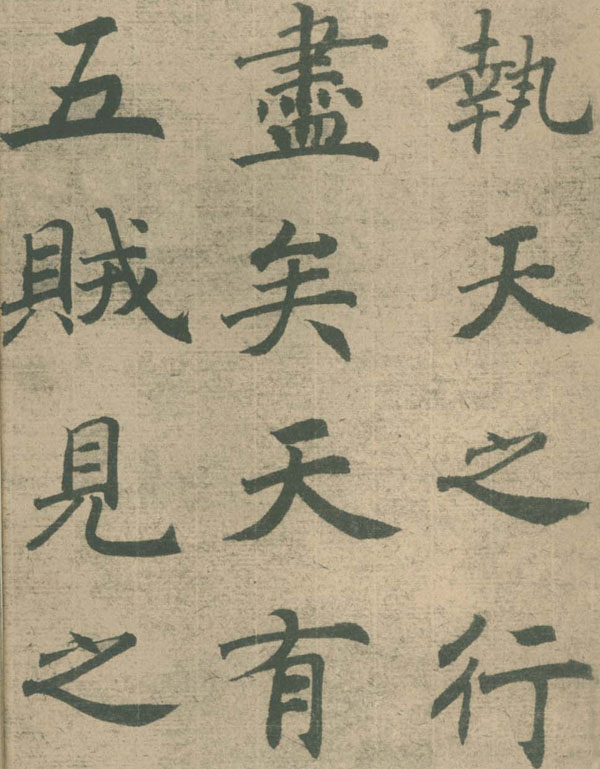 執天之行
盡矣天有
五賊見之